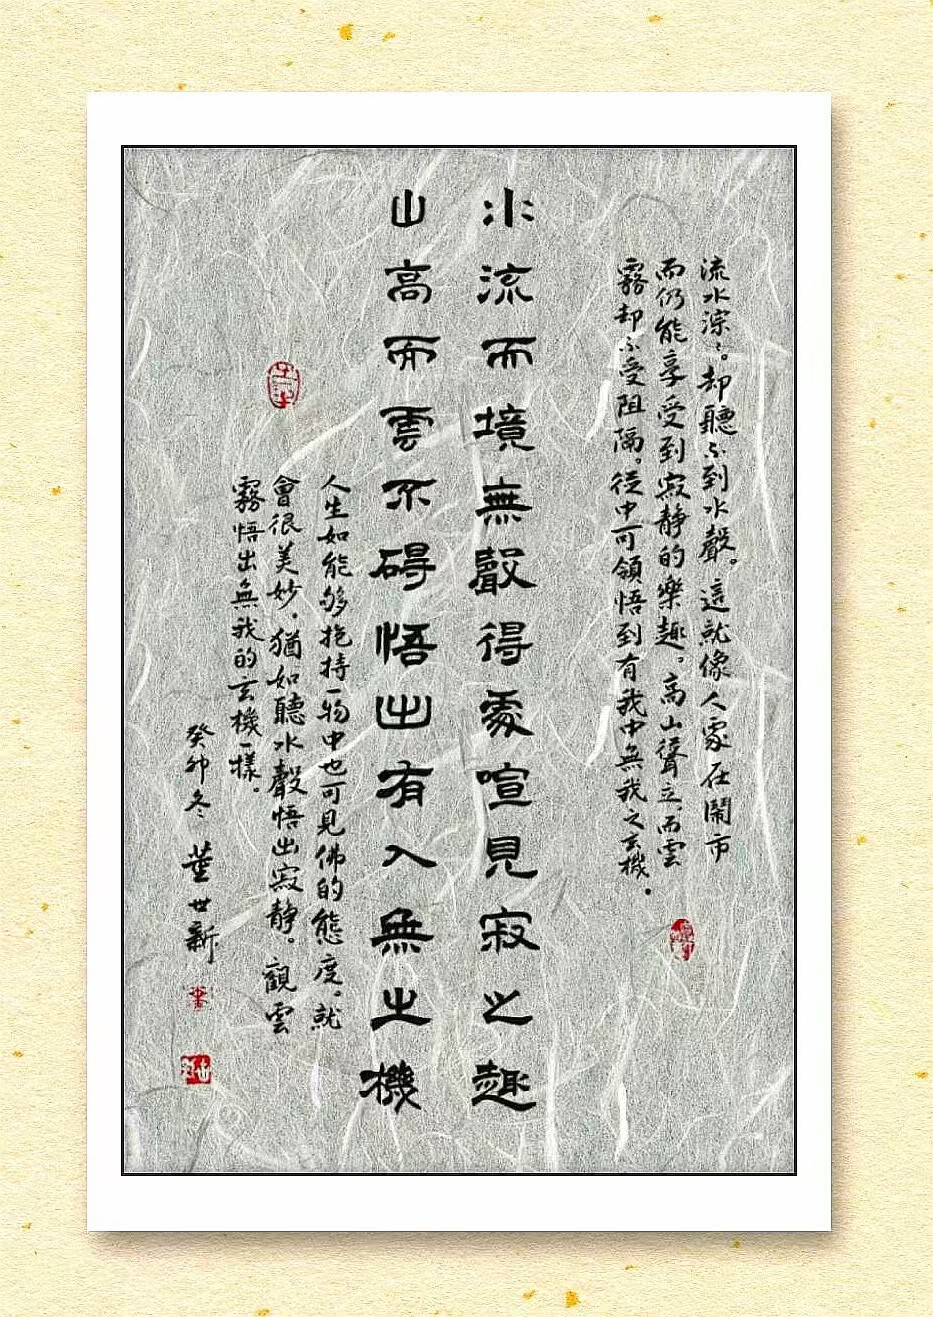 流水淙々。却聽不到水聲。這就像人處在鬧市
而仍能享受到寂静的樂趣。高山聳立而雲
霧却不受阻隔。從中可領悟到有我中無我之玄機.
水流而境無聲得處喧見寂之趣
山高而雲不碍悟出有入無之機
人生如能够抱持一物中也可見佛的態度。就
會很美妙.猶如聽水聲悟出寂静。觀雲
霧悟出無我的玄機一樣.
癸卯冬 董世新